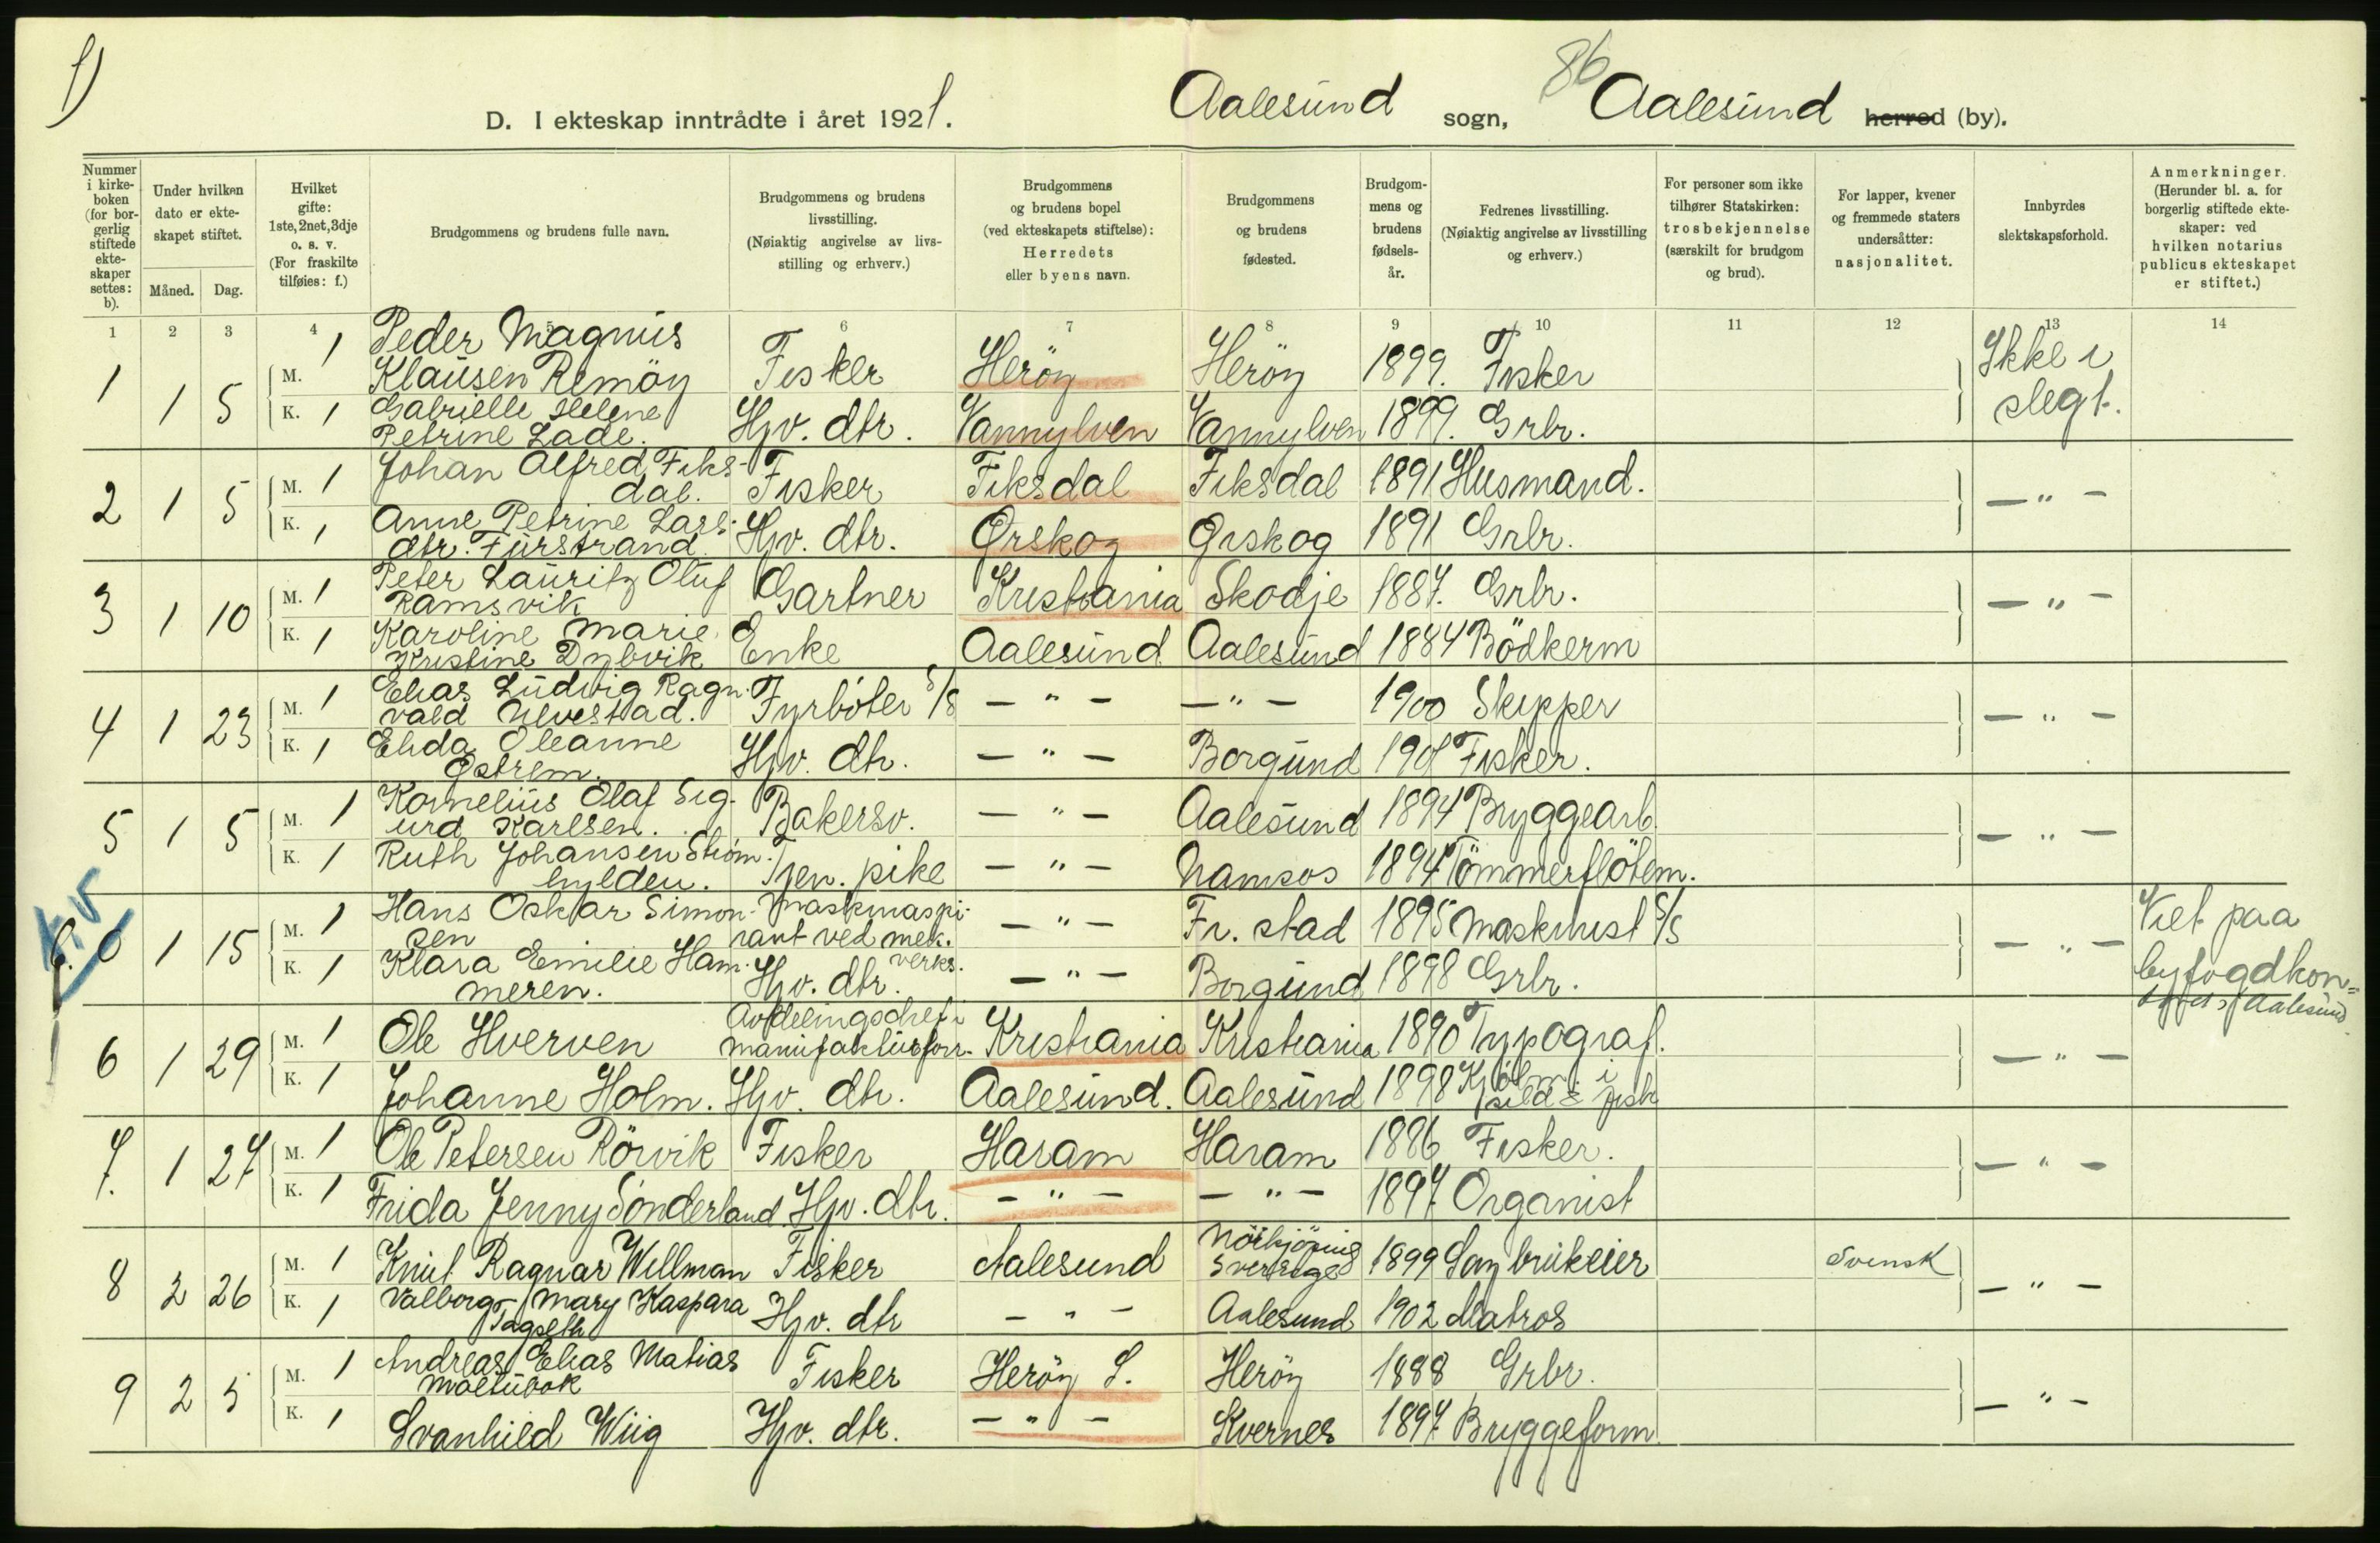 1)
86
D. I ekteskap inntrådte i året 1921. Aalesund sogn, Aalesund herred (by).
Nummer i kirkeboken (for borgerlig stiftede ekteskaper settes: b).
Under hvilken dato er ekteskapet stiftet.
Måned. Dag.
Hvilket gifte: 1ste, 2net, 3dje o. s. v. (For fraskilte tilføies: f.)
Brudgommens og brudens fulle navn.
Brudgommens og brudens livsstilling. (Nøiaktig angivelse av livsstilling og erhverv.)
Brudgommens og brudens bopel (ved ekteskapets stiftelse): Herredets eller byens navn.
Brudgommens og brudens fødested.
Brudgommens og brudens fødselsår.
Fedrenes livsstilling. (Nøiaktig angivelse av livsstilling og erhverv.)
For personer som ikke tilhører Statskirken: trosbekjennelse (særskilt for brudgom og brud).
For lapper, kvener og fremmede staters undersåtter: nasjonalitet.
Innbyrdes slektskapsforhold.
Anmerkninger. (Herunder bl. a. for borgerlig stiftede ekteskaper: ved hvilken notarius publicus ekteskapet er stiftet.)
1 2 3 4 5 6 7 8 9 10 11 12 13 14
1 1 5 M. 1 Peder Magnus Klausen Remöy Fisker Heröy Heröy 1899. Fisker Ikke i slegt.
K. 1 Gabrielle Helene Petrine Lade. Hjv. dtr. Vannylven Vannylven 1899. Grbr.
2 1 5 M. 1 Johan Alfred Fiksdal. Fisker Fiksdal Fiksdal 1891 Husmand. — " —
K. 1 Anne Petrine Larsdtr. Furstrand. Hjv. dtr. Ørskog Ørskog 1891 Grbr.
3 1 10 M. 1 Peter Lauritz Oluf Ramsvik Gartner Kristiania Skodje 1887. Grbr. — " —
K. 1 Karoline Marie Kristine Dybvik Enke Aalesund Aalesund 1884 Bödkerm
4 1 23 M. 1 Elias Ludvig Ragnvald Ulvestad. Fyrböter S/S — " — — " — 1900 Skipper — " —
K. 1 Elida Oleanne Østrem. Hjv. dtr. — " — Borgund 1901 Fisker.
5 1 5 M. 1 Kornelius Olaf Sigurd Karlsen. Bakersv. — " — Aalesund 1894 Bryggearb. — " —
K. 1 Ruth Johansen Strömhylden. Tjen. pike — " — Namsos 1894 Tömmerflöterm.
1 15 M. 1 Hans Oskar Simonsen Maskinaspirant ved mek. verks. — " — Fr. stad 1895 Maskinist S/S — " — Viet paa byfogdkon= Aalesund.
K. 1 Klara Emilie Hammeren. Hjv. dtr. — " — Borgund 1898 Grbr.
6 1 29 M. 1 Ole Hverven Avdelingschef i manufakturforr. Kristiania Kristiania 1890 Typograf. — " —
K. 1 Johanne Holm. Hjv. dtr. Aalesund. Aalesund 1898 Kjöbm. i sild & fisk
7. 1 27 M. 1 Ole Petersen Rörvik Fisker Haram Haram 1886 Fisker. — " —
K. 1 Frida Jenny Sönderland. Hjv. dtr. — " — — " — 1897. Organist
8 2 26 M. 1 Knut Ragnar Willman Fisker Aalesund Norrkjöping Sverige 1899 Sagbrukeier Svensk — " —
K. 1 Valborg Mary Kaspara Tagseth Hjv. dtr — " — Aalesund 1902 Matros
9 2 5 M. 1 Andreas Elias Matias Fisker Heröy S. Heröy 1888 Grbr. — " —
K. 1 Svanhild Wiig Hjv. dtr. — " — Kvernes 1897. Bryggeform.